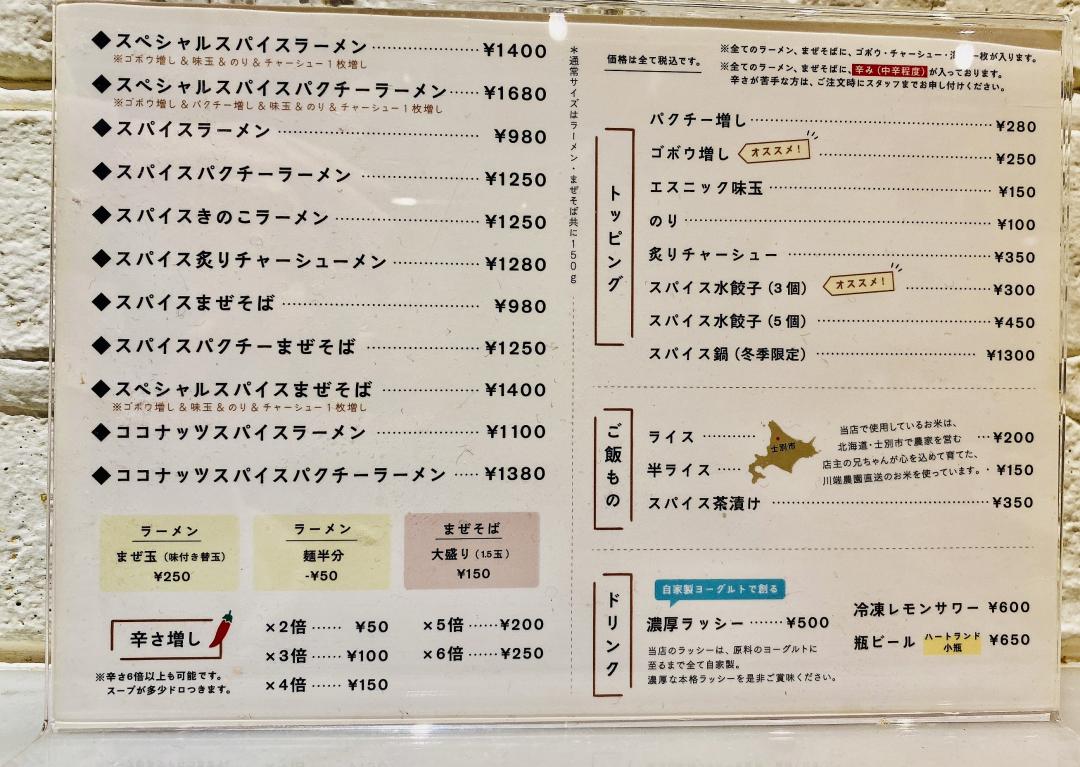 ◆スペシャルスパイスラーメン ¥1400
※ゴボウ増し & 味玉 & のり & チャーシュー1枚増し
◆スペシャルスパイスパクチーラーメン ¥1680
※ゴボウ増し & パクチー増し & 味玉 & のり & チャーシュー1枚増し
◆スパイスラーメン ¥980
◆スパイスパクチーラーメン ¥1250
◆スパイスきのこラーメン ¥1250
◆スパイス炙りチャーシューメン ¥1280
◆スパイスまぜそば ¥980
◆スパイスパクチーまぜそば ¥1250
◆スペシャルスパイスまぜそば ¥1400
※ゴボウ増し & 味玉 & のり & チャーシュー1枚増し
◆ココナッツスパイスラーメン ¥1100
◆ココナッツスパイスパクチーラーメン ¥1380
ラーメン
まぜ玉（味付き替玉）
¥250
ラーメン
麺半分
-¥50
まぜそば
大盛り（1.5玉）
¥150
辛さ増し
※辛さ6倍以上も可能です。
スープが多少ドロつきます。
×2倍 …… ¥50
×3倍 …… ¥100
×4倍 …… ¥150
×5倍 …… ¥200
×6倍 …… ¥250
＊通常サイズはラーメン・まぜそば共に150g
価格は全て税込です。
※全てのラーメン、まぜそばに、ゴボウ・チャーシュー・一枚が入ります。
※全てのラーメン、まぜそばに、辛み（中辛程度）が入っております。
辛さが苦手な方は、ご注文時にスタッフまでお申し付けください。
トッピング
パクチー増し ¥280
ゴボウ増し オススメ！ ¥250
エスニック味玉 ¥150
のり ¥100
炙りチャーシュー ¥350
スパイス水餃子（3個） オススメ！ ¥300
スパイス水餃子（5個） ¥450
スパイス鍋（冬季限定） ¥1300
ご飯もの
ライス ¥200
半ライス ¥150
士別市
当店で使用しているお米は、
北海道・士別市で農家を営む
店主の兄ちゃんが心を込めて育てた、
川端農園直送のお米を使っています。
スパイス茶漬け ¥350
ドリンク
自家製ヨーグルトで創る
濃厚ラッシー ¥500
当店のラッシーは、原料のヨーグルトに
至るまで全て自家製。
濃厚な本格ラッシーを是非ご賞味ください。
冷凍レモンサワー ¥600
瓶ビール ハートランド 小瓶 ¥650